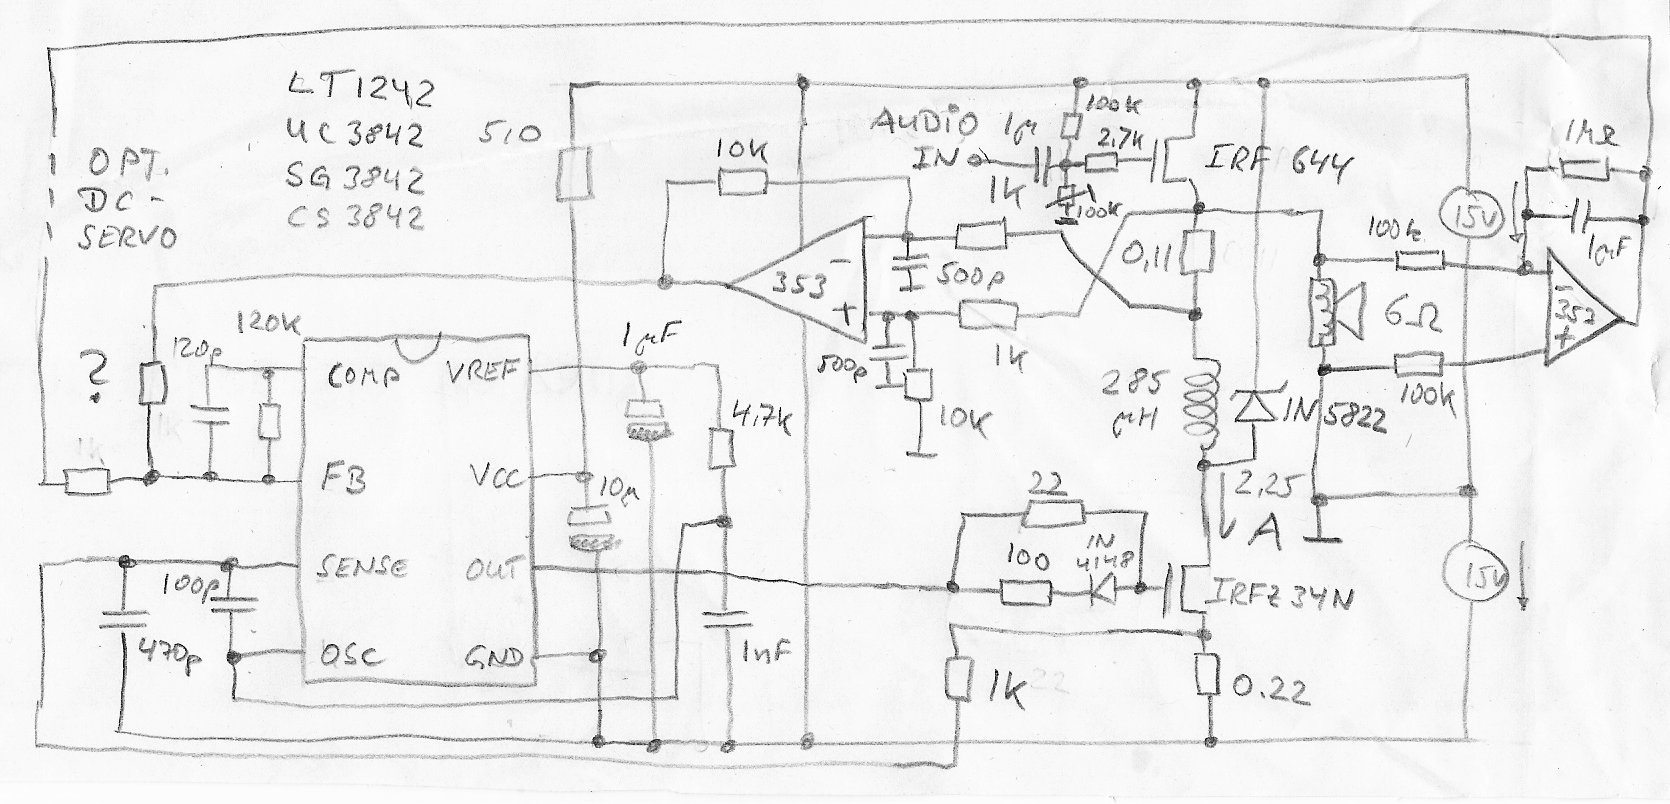 LT1242
UC3842
SG3842
CS3842
OPT.
DC-
SERVO
5,0
10K
AUDiO
IN
1µ
100K
2,7K
IRF 644
1K
100K
1MΩ
15V
100k
1µF
353
-
+
500p
0,11
6Ω
353
-
+
1K
500p
10K
120K
120p
?
1µF
COMP
VREF
4,7K
285
µH
1N 5822
100K
1k
FB
VCC
10µ
22
2,25
A
100
1N
4148
SENSE
OUT
IRFZ34N
15V
100p
470p
OSC
GND
1nF
1K
0.22